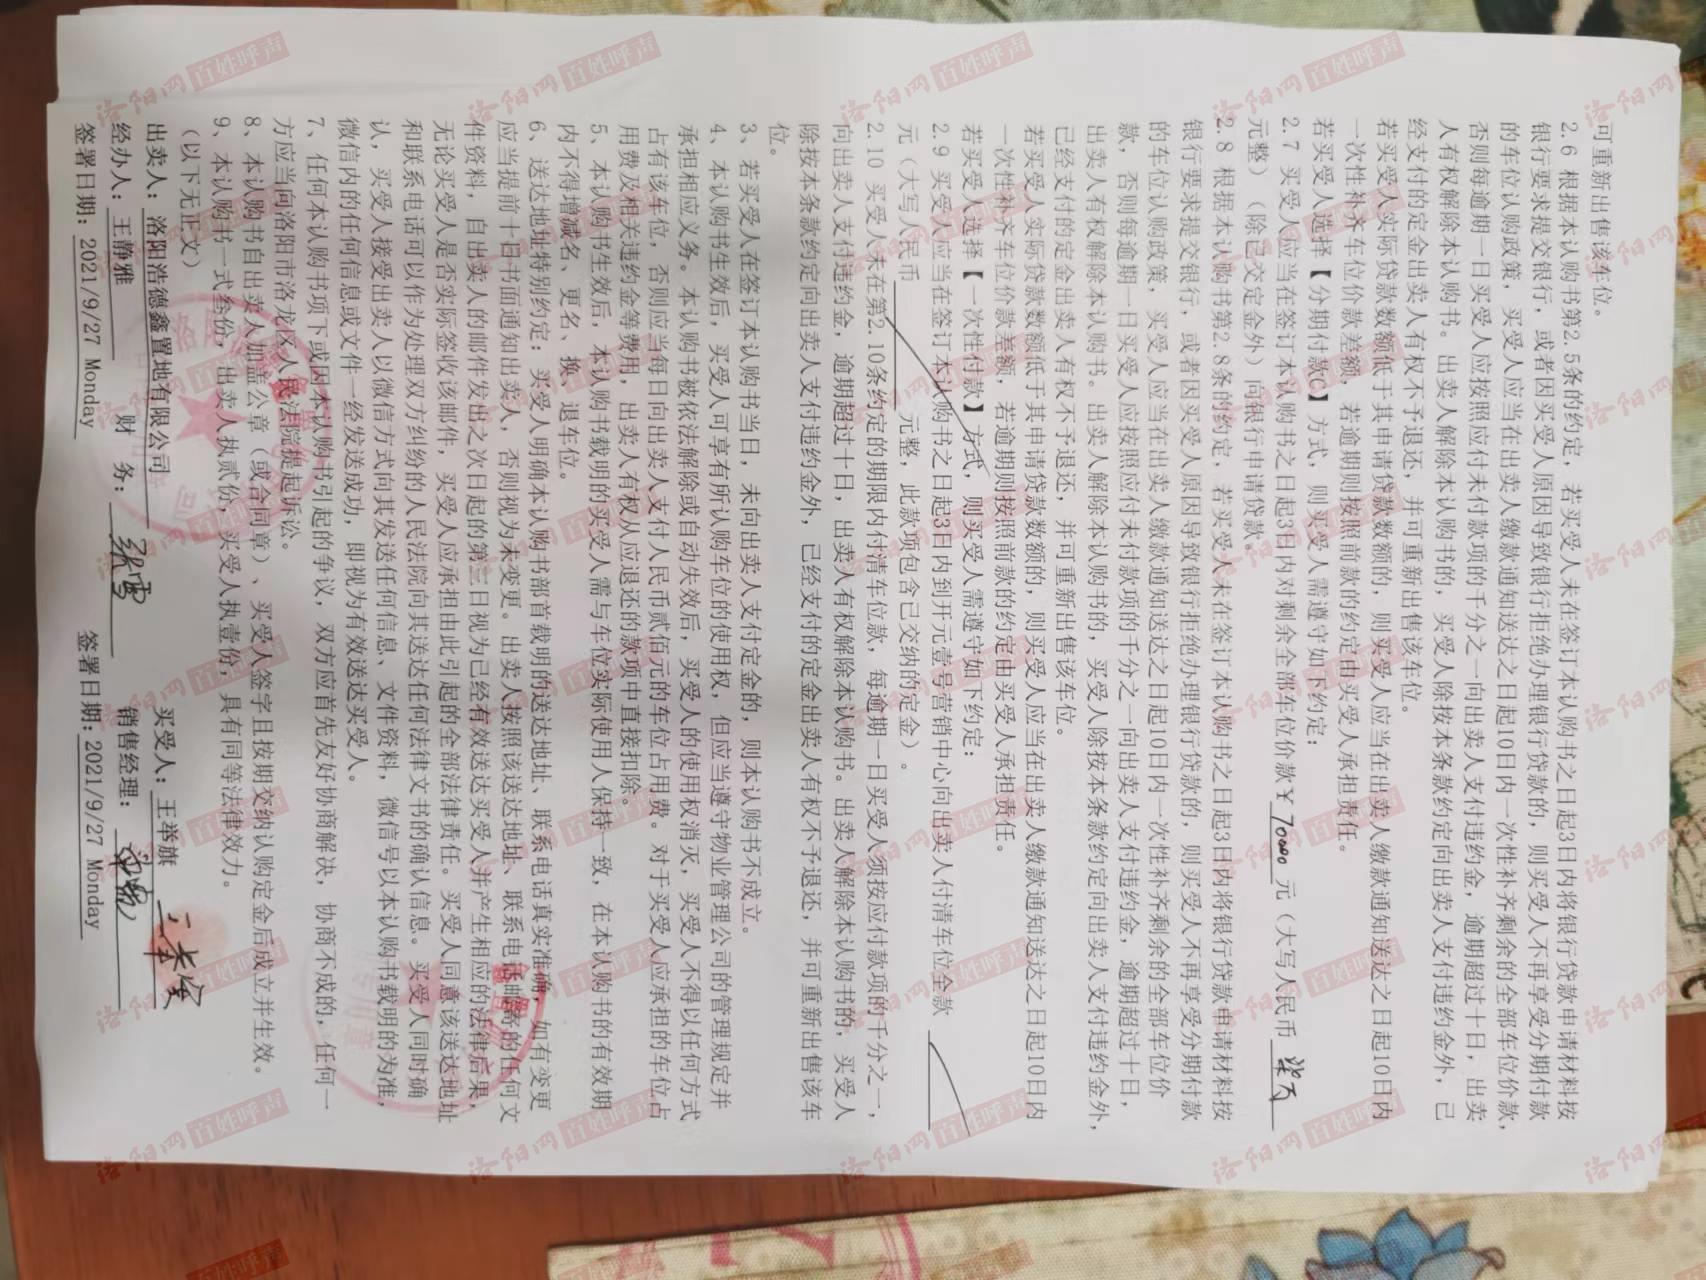 可重新出售该车位。
2.6 根据本认购书第2.5条的约定，若买受人未在签订本认购书之日起3日内将银行贷款申请材料按
银行要求提交银行，或者因买受人原因导致银行拒绝办理银行贷款的，则买受人不再享受分期付款
的车位认购政策，买受人应当在出卖人缴款通知送达之日起10日内一次性补齐剩余的全部车位价款，
否则每逾期一日买受人应按照应付未付款项的千分之一向出卖人支付违约金，逾期超过十日，出卖
人有权解除本认购书。出卖人解除本认购书的，买受人除按本条款约定向出卖人支付违约金外，已
经支付的定金出卖人有权不予退还，并可重新出售该车位。
若买受人实际贷款数额低于其申请贷款数额的，则买受人应当在出卖人缴款通知送达之日起10日内
一次性补齐车位价款差额，若逾期则按照前款的约定由买受人承担责任。
若买受人选择【分期付款C】方式，则买受人需遵守如下约定：
2.7 买受人应当在签订本认购书之日起3日内对剩余全部车位价款￥70000元（大写人民币柒万
元整）（除已交定金外）向银行申请贷款。
2.8 根据本认购书第2.8条的约定，若买受人未在签订本认购书之日起3日内将银行贷款申请材料按
银行要求提交银行，或者因买受人原因导致银行拒绝办理银行贷款的，则买受人不再享受分期付款
的车位认购政策，买受人应当在出卖人缴款通知送达之日起10日内一次性补齐剩余的全部车位价
款，否则每逾期一日买受人应按照应付未付款项的千分之一向出卖人支付违约金，逾期超过十日，
出卖人有权解除本认购书。出卖人解除本认购书的，买受人除按本条款约定向出卖人支付违约金外，
已经支付的定金出卖人有权不予退还，并可重新出售该车位。
若买受人实际贷款数额低于其申请贷款数额的，则买受人应当在出卖人缴款通知送达之日起10日内
一次性补齐车位价款差额，若逾期则按照前款的约定由买受人承担责任。
若买受人选择【一次性付款】方式，则买受人需遵守如下约定：
2.9 买受人应当在签订本认购书之日起3日内到开元壹号营销中心向出卖人付清车位全款
元（大写人民币 元整，此款项包含已交纳的定金）。
2.10 买受人未在第2.10条约定的期限内付清车位款，每逾期一日买受人须按应付款项的千分之一，
向出卖人支付违约金，逾期超过十日，出卖人有权解除本认购书。出卖人解除本认购书的，买受人
除按本条款约定向出卖人支付违约金外，已经支付的定金出卖人有权不予退还，并可重新出售该车
位。
3、若买受人在签订本认购书当日，未向出卖人支付定金的，则本认购书不成立。
4、本认购书生效后，买受人可享有所认购车位的使用权，但应当遵守物业管理公司的管理规定并
承担相应义务。本认购书被依法解除或自动失效后，买受人的使用权消灭，买受人不得以任何方式
占有该车位，否则应当每日向出卖人支付人民币贰佰元的车位占用费。对于买受人应承担的车位占
用费及相关违约金等费用，出卖人有权从应退还的款项中直接扣除。
5、本认购书生效后，本认购书载明的买受人需与车位实际使用人保持一致，在本认购书的有效期
内不得增减名、更名、换、退车位。
6、送达地址特别约定：买受人明确本认购书部首载明的送达地址、联系电话真实准确，如有变更
应当提前十日书面通知出卖人，否则视为未变更。出卖人按照该送达地址、联系电话邮寄的任何文
件资料，自出卖人的邮件发出之次日起的第三日视为已经有效送达买受人并产生相应的法律后果，
无论买受人是否实际签收该邮件，买受人应承担由此引起的全部法律责任。买受人同意该送达地址
和联系电话可以作为处理双方纠纷的人民法院向其送达任何法律文书的确认信息。买受人同时确
认，买受人接受出卖人以微信方式向其发送任何信息、文件资料，微信号以本认购书载明的为准，
微信内的任何信息或文件一经发送成功，即视为有效送达买受人。
7、任何本认购书项下或因本认购书引起的争议，双方应首先友好协商解决，协商不成的，任何一
方应当向洛阳市洛龙区人民法院提起诉讼。
8、本认购书自出卖人加盖公章（或合同章）、买受人签字且按期交纳认购定金后成立并生效。
9、本认购书一式叁份，出卖人执贰份，买受人执壹份，具有同等法律效力。
（以下无正文）
出卖人：洛阳浩德鑫置地有限公司 买受人：王举旗
经办人：王静雅 财 务：张雪 销售经理：
签署日期：2021/9/27 Monday 签署日期：2021/9/27 Monday
洛阳网 百姓呼声